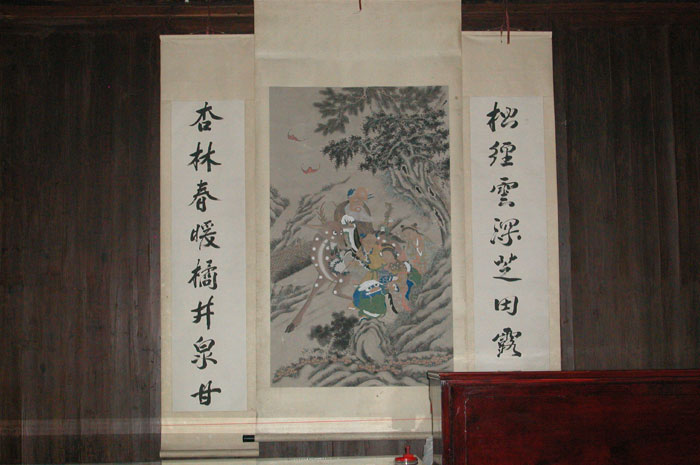 松徑雲深芝田露
杏林春暖橘井泉甘